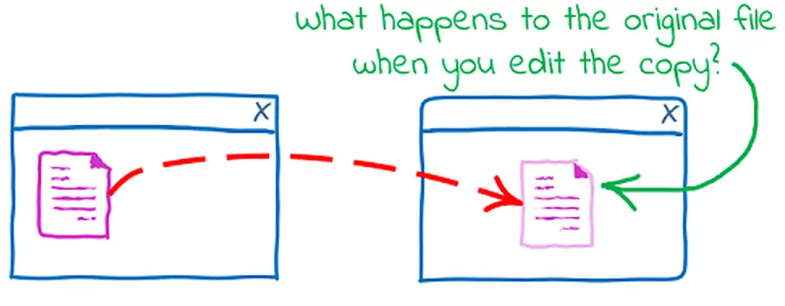 what happens to the original file
when you edit the copy?
X
X